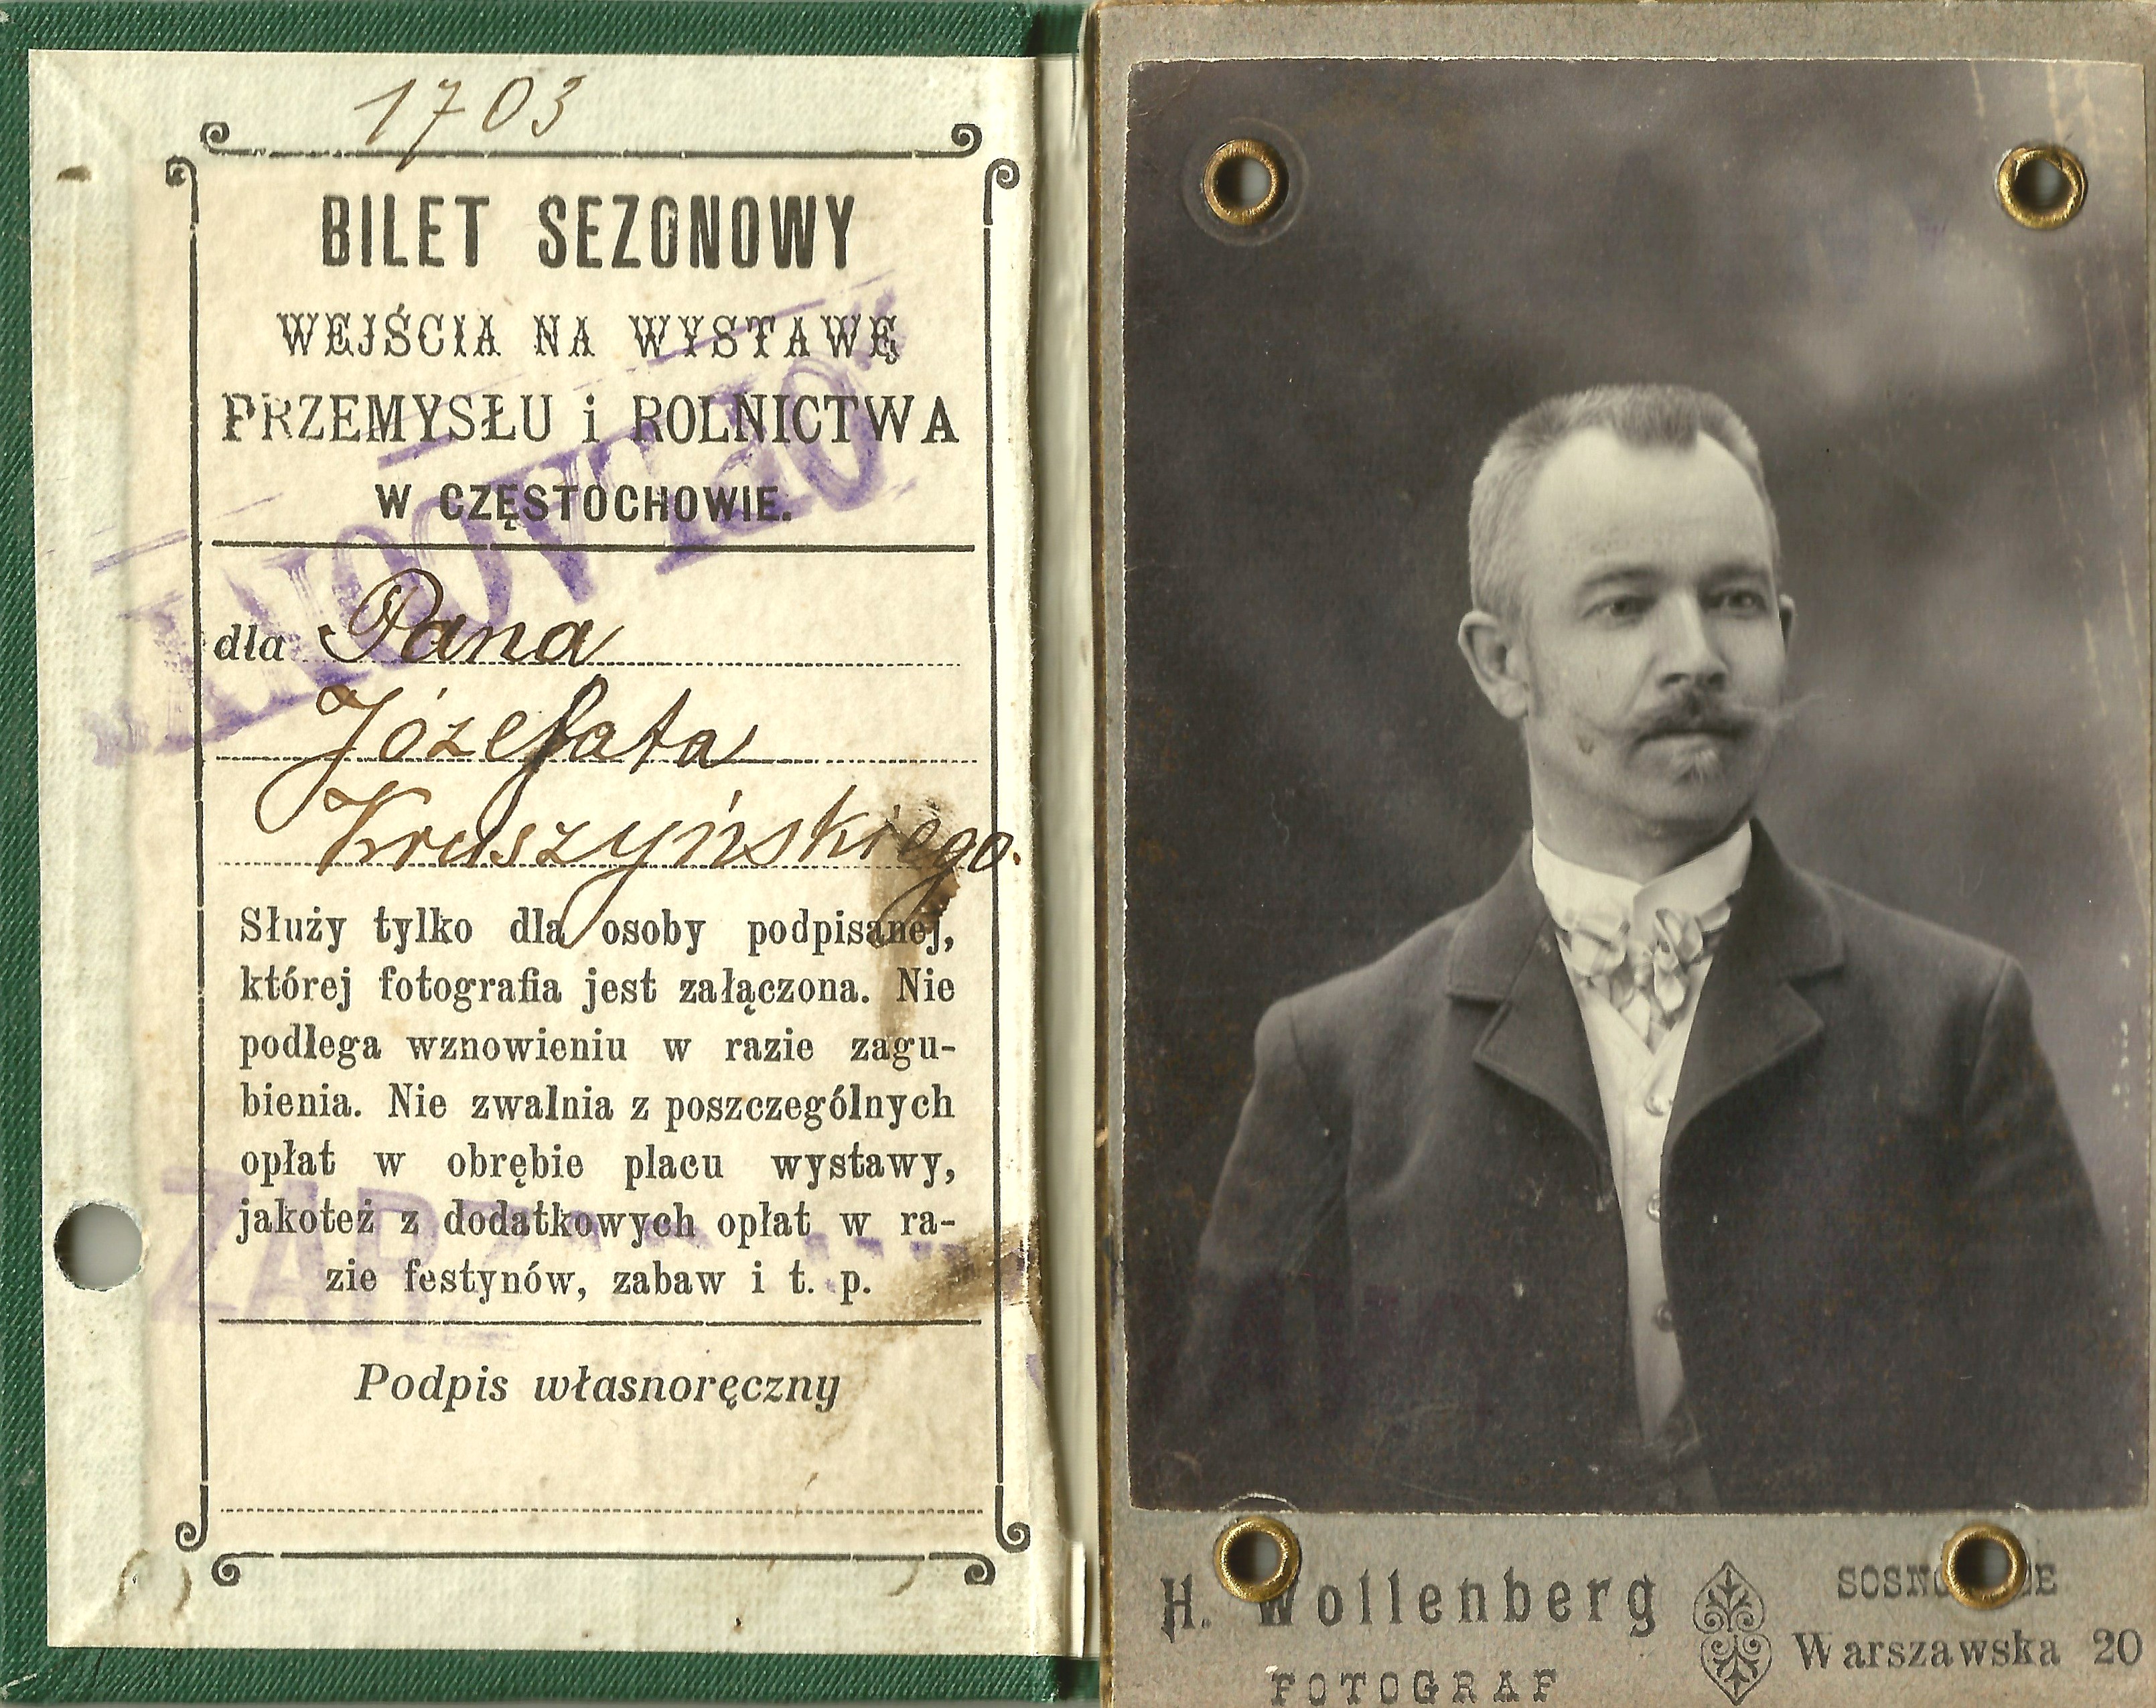 1703
BILET SEZONOWY
WEJŚCIA NA WYSTAWĘ
PRZEMYSŁU i ROLNICTWA
W CZĘSTOCHOWIE.
dla Pana
Józefata
Kruszyńskiego.
Służy tylko dla osoby podpisanej,
której fotografia jest załączona. Nie
podlega wznowieniu w razie zagu-
bienia. Nie zwalnia z poszczególnych
opłat w obrębie placu wystawy,
jakoteż z dodatkowych opłat w ra-
zie festynów, zabaw i t. p.
Podpis własnoręczny
H. Wollenberg
FOTOGRAF
Warszawska 20